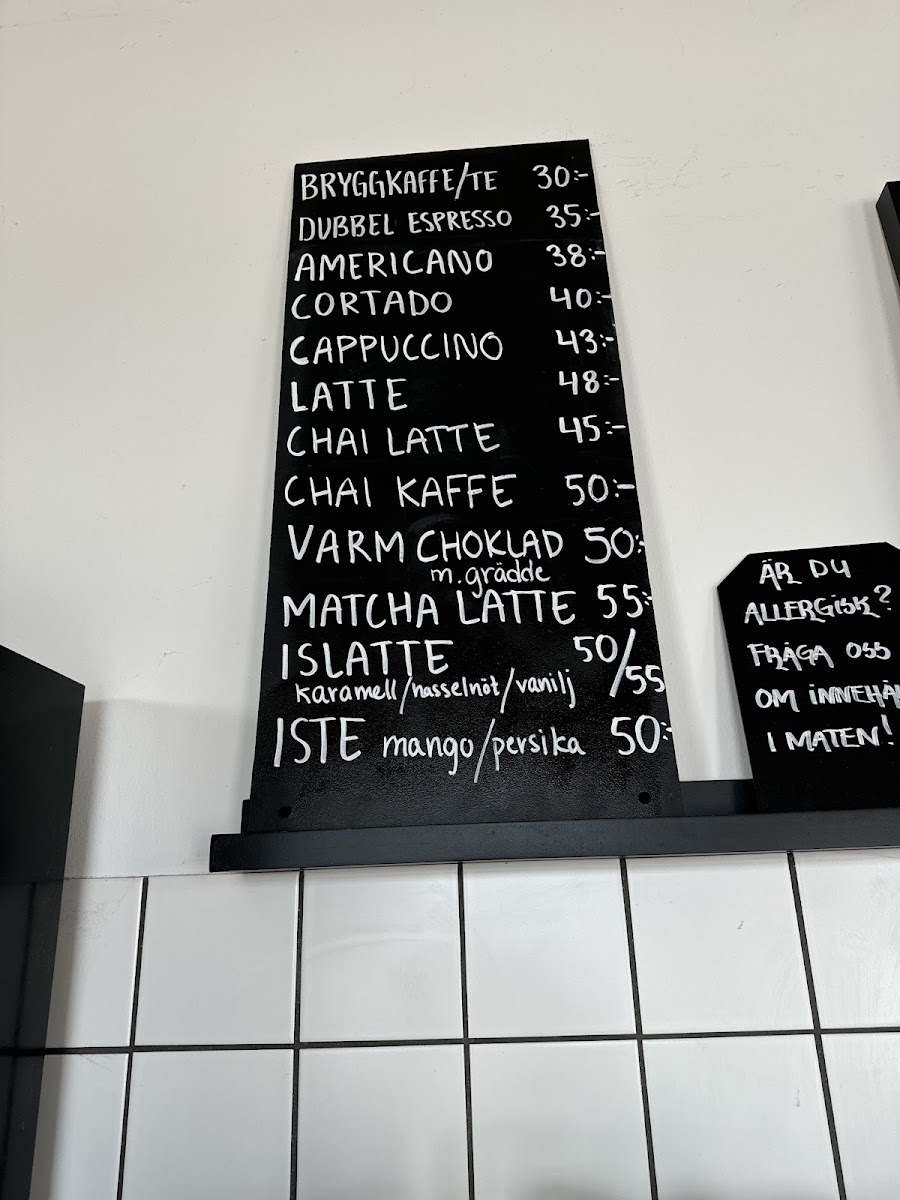 BRYGGKAFFE/TE 30:-
DUBBEL ESPRESSO 35:-
AMERICANO 38:-
CORTADO 40:-
CAPPUCCINO 43:-
LATTE 48:-
CHAI LATTE 45:-
CHAI KAFFE 50:-
VARM CHOKLAD 50:-
m. grädde
MATCHA LATTE 55:-
ISLATTE 50/55
karamell/hasselnöt/vanilj
ISTE mango/persika 50:-
ÄR DU
ALLERGISK?
FRÅGA OSS
OM INNEHÅ
I MATEN!